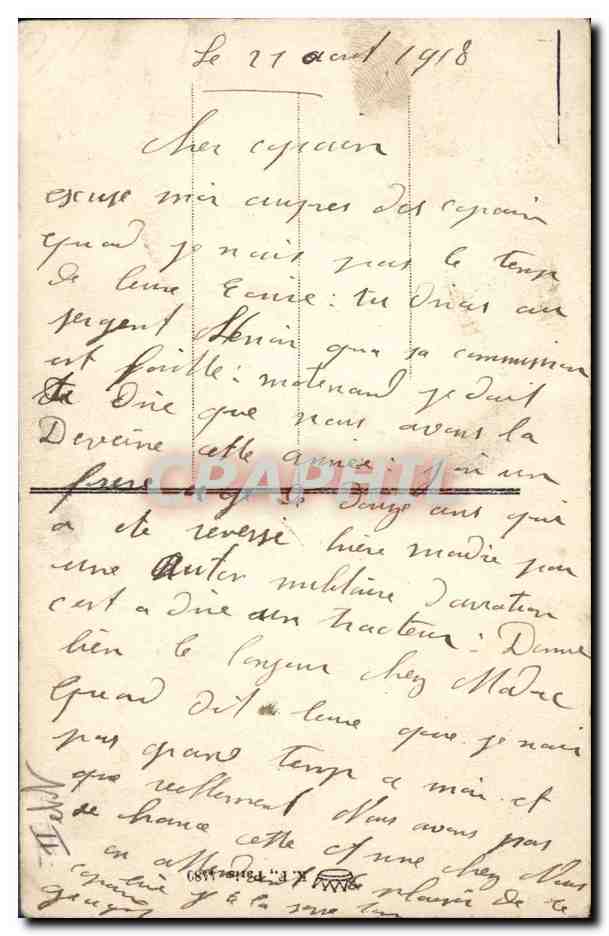 Le 21 aout 1918
cher copain
excuse moi aupres des copain
quand je nais pas le temp
de leure Ecrire : tu diras au
sergent que sa commission
est faitte : matenand je doit
te dire que nous avons la
Deveine cette année : j'ai un
frere age de douze ans qui
a ete reversé hière madie par
une Autor militaire d'aviation
c'est a dire un tracteur : Donne
bien le bonjour chez
quand dit leure que je nais
pas grand temp a moi et
que reellement Nous avons pas
de chance cette chez Nous
en attendant le plaisir de te
lire
K. F., Paris 4489
CPAPHIL